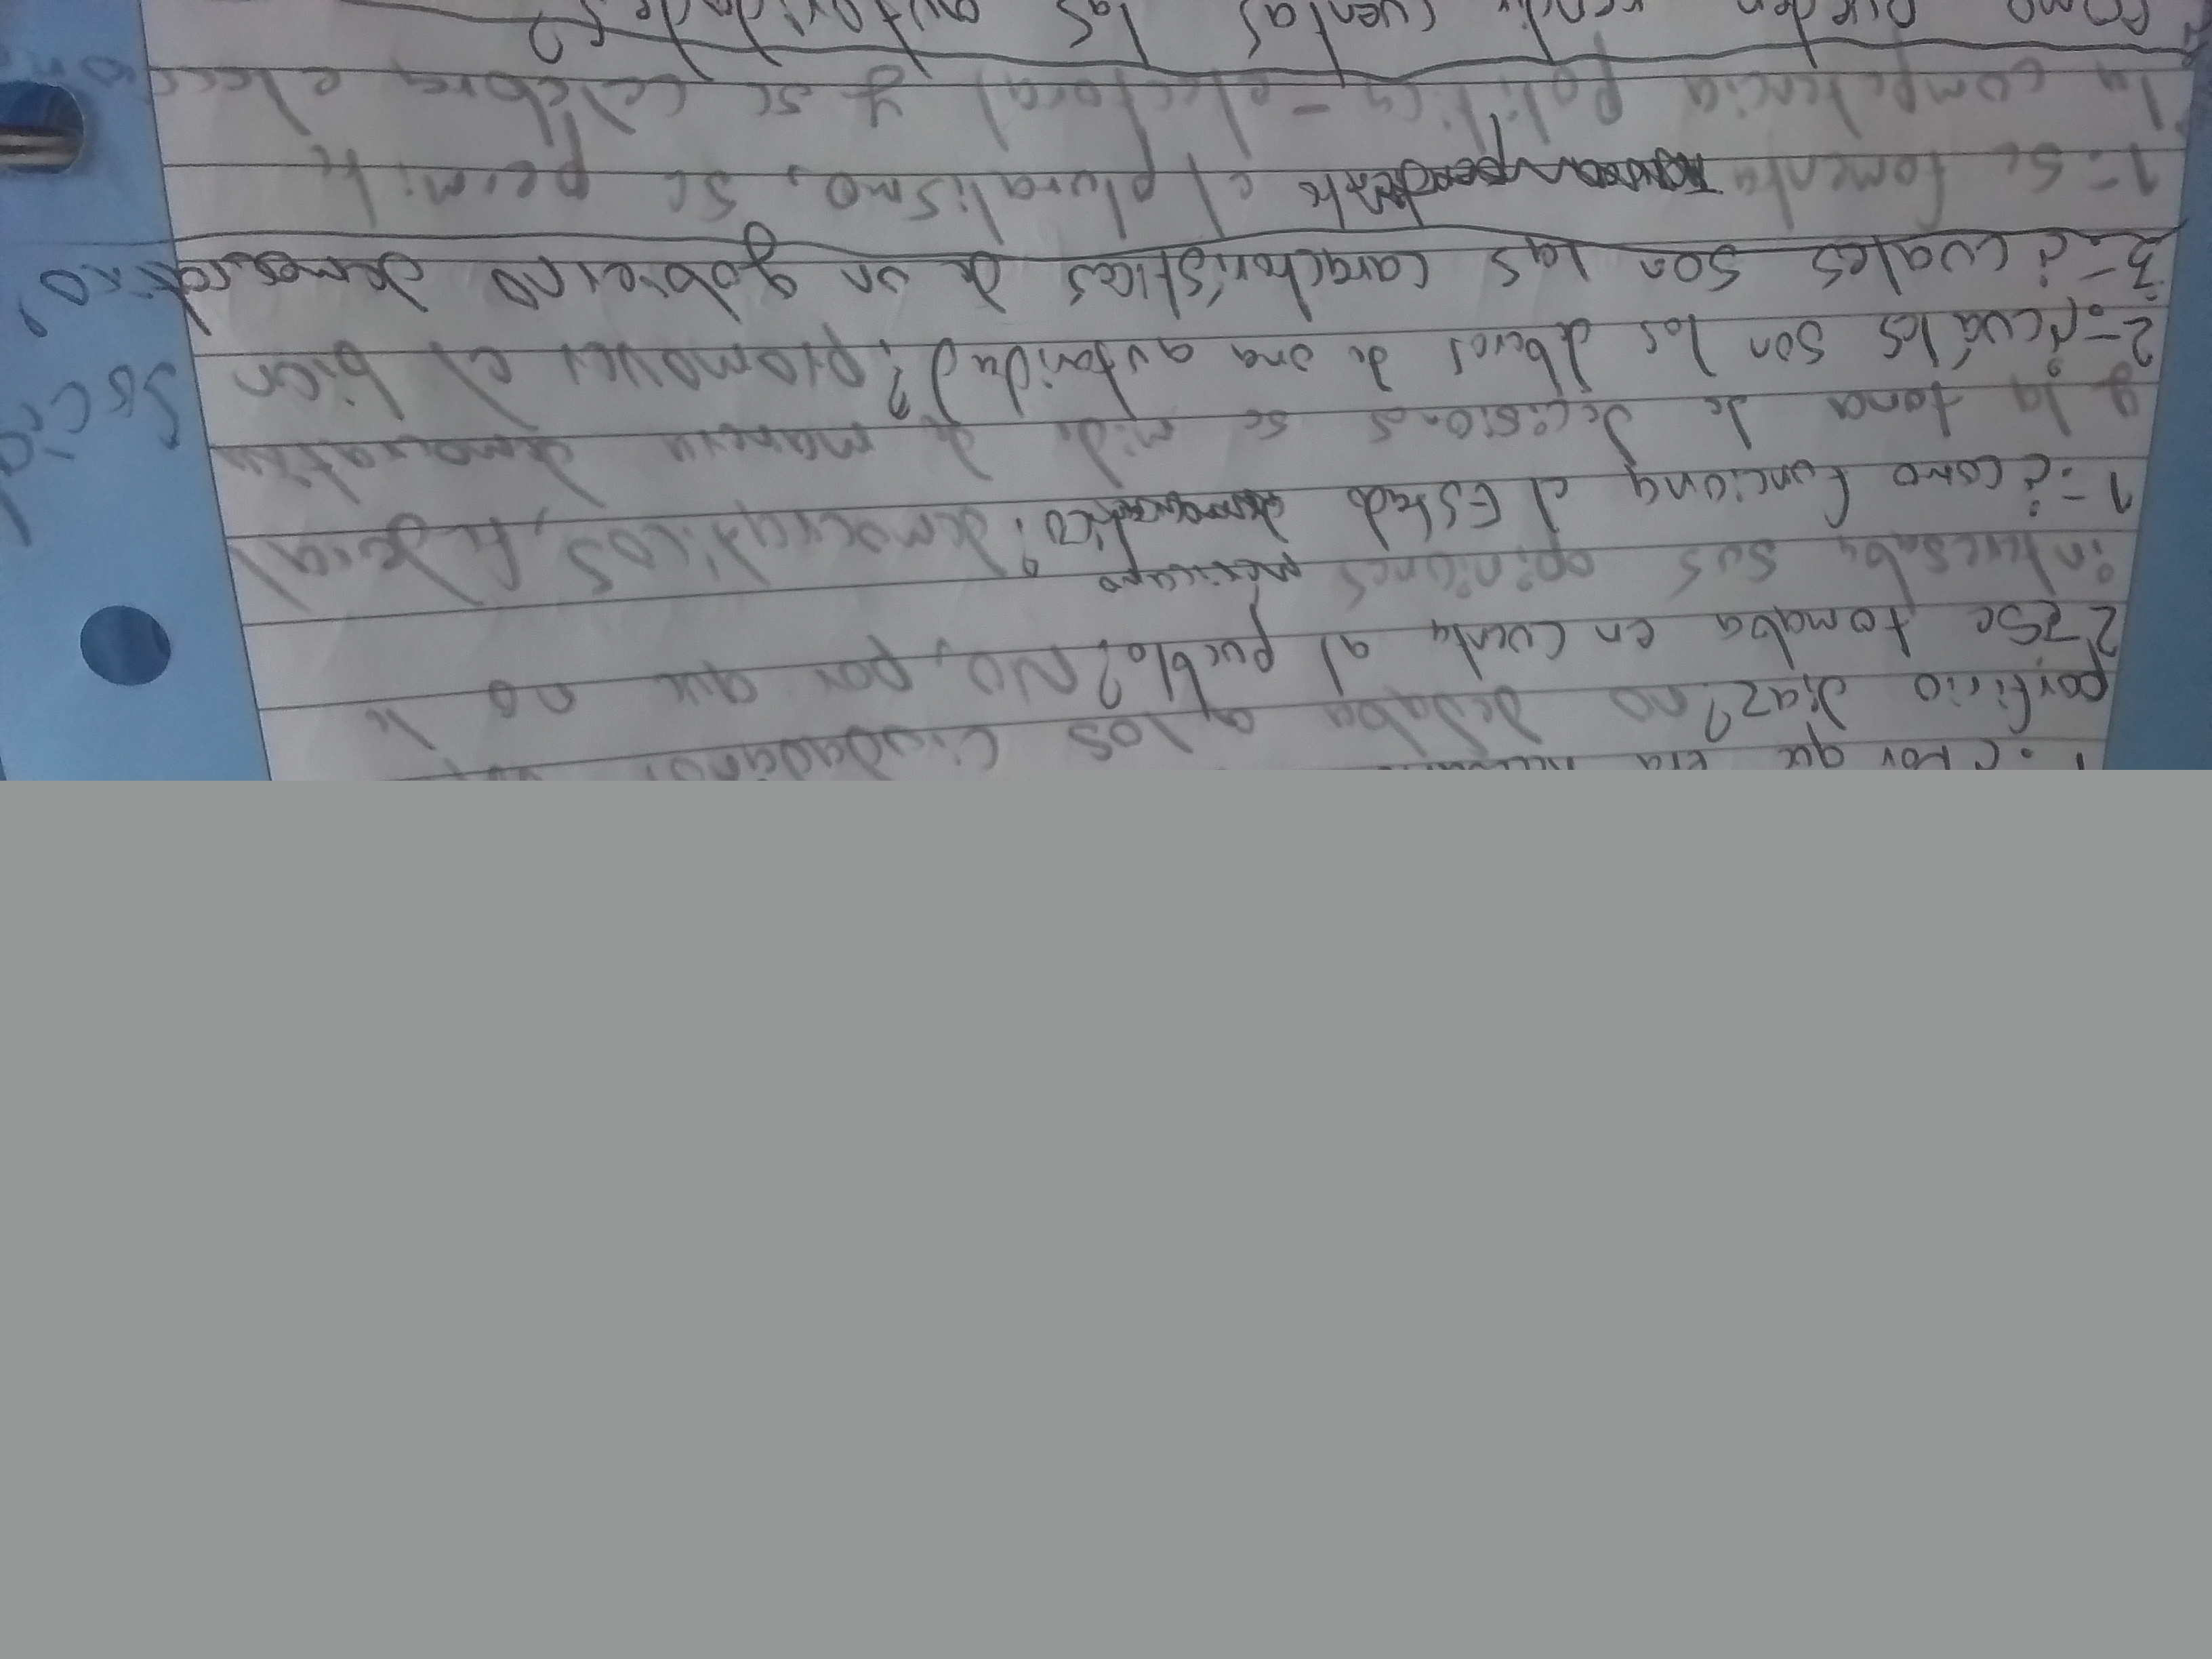 porfirio diaz? no dejaba a los ciudadanos
2-¿Se tomaba en cuenta al pueblo? NO, por que no le
interesaba sus opiniones
1-¿como funciona el Estado mexicano? democraticos, federal
y la toma de decisiones se mide de manera democratica
2-¿cuáles son los dberes de una autoridad? promover el bien
3-¿cuales son las caracteristicas de un gobierno
1-Se fomenta el pluralismo, se permite
la competencia politica-electoral y se celebra
como pueden rendir cuentas las autoridades?